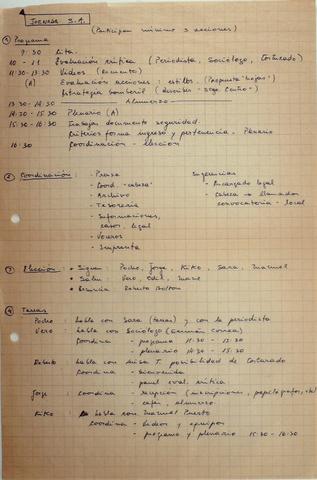 JORNADA S.A.
(Participan mínimo 3 acciones)
① Programa
9:30 Cita.
10 - 11 Evaluación crítica (Periodista, Sociólogo, Costurado)
11:30 - 13:30 Videos (Recuento)
(A) Evaluación acciones: estilos. (Propuesta "hojas")
Estrategia bomberil (
13:30 - 14:30 Almuerzo
14:30 - 15:30 Plenario (A)
15:30 - 16:30 Trabajo documento seguridad.
Criterios forma ingreso y pertenencia. Plenario
16:30 Coordinación - Elección
② Coordinación: - Prensa
- Coord. "cabeza"
- Archivo
- Tesorería
- Informaciones,
casos, legal
- Voceros
- Imprenta
Sugerencias
- Encargado legal
- Cabeza → llamados
convocatoria - local
③ Elección: • Siguen: Pocho, Jorge, Kiko, Sara, Manuel
• Salen: Vero,
• Renuncia Roberto Bolton
④ Tareas
Pocho: habla con Sara (tareas) y con la periodista
Vero: habla con Sociólogo (Germán Correa)
Coordina - programa 11:30 - 13:30
- plenario 14:30 - 15:30
Roberto: habla con Luisa T. posibilidad de Costurado
Coordina - bienvenida
- panel eval. crítica
Jorge: coordina - recepción (inscripciones, papelógrafos, etc)
- café, almuerzo
Kiko: habla con Manuel Puerto
coordina - Videos y equipos
- programa y plenario 15:30 - 16:30